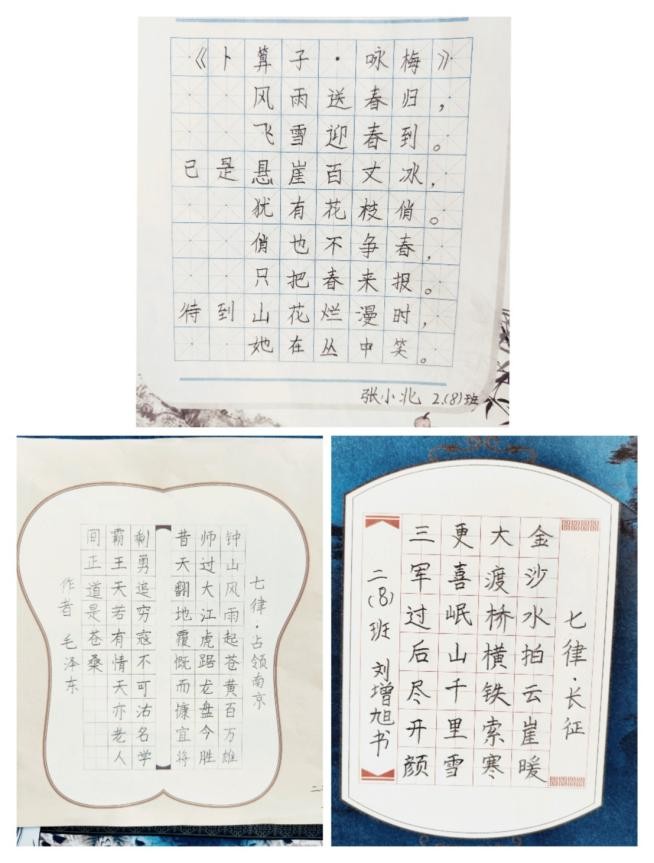 《卜算子·咏梅》
风雨送春归，
飞雪迎春到。
已是悬崖百丈冰，
犹有花枝俏。
俏也不争春，
只把春来报。
待到山花烂漫时，
她在丛中笑。
张小北 2.(8)班
七律·占领南京
钟山风雨起苍黄百万雄
师过大江虎踞龙盘今胜
昔天翻地覆慨而慷宜将
剩勇追穷寇不可沽名学
霸王天若有情天亦老人
间正道是苍桑
作者 毛泽东
七律·长征
金沙水拍云崖暖
大渡桥横铁索寒
更喜岷山千里雪
三军过后尽开颜
二(8)班 刘增旭书